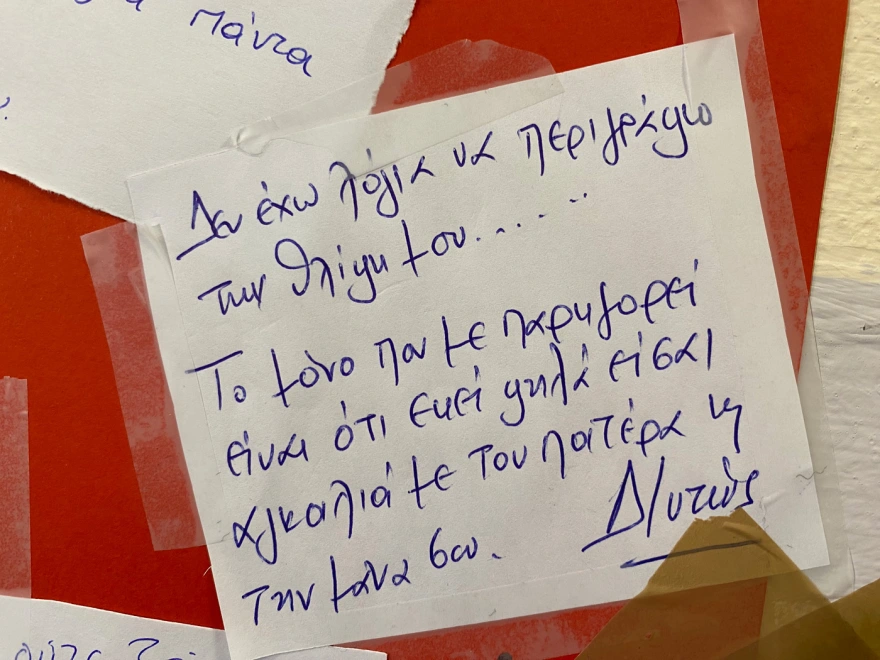 πάντα
Δεν έχω λόγια να περιγράψω
την θλίψη μου.......
Το μόνο που με παρηγορεί
είναι ότι εκεί ψηλά είσαι
αγκαλιά με τον πατέρα κ
την μάνα σου.
Δ/ντής